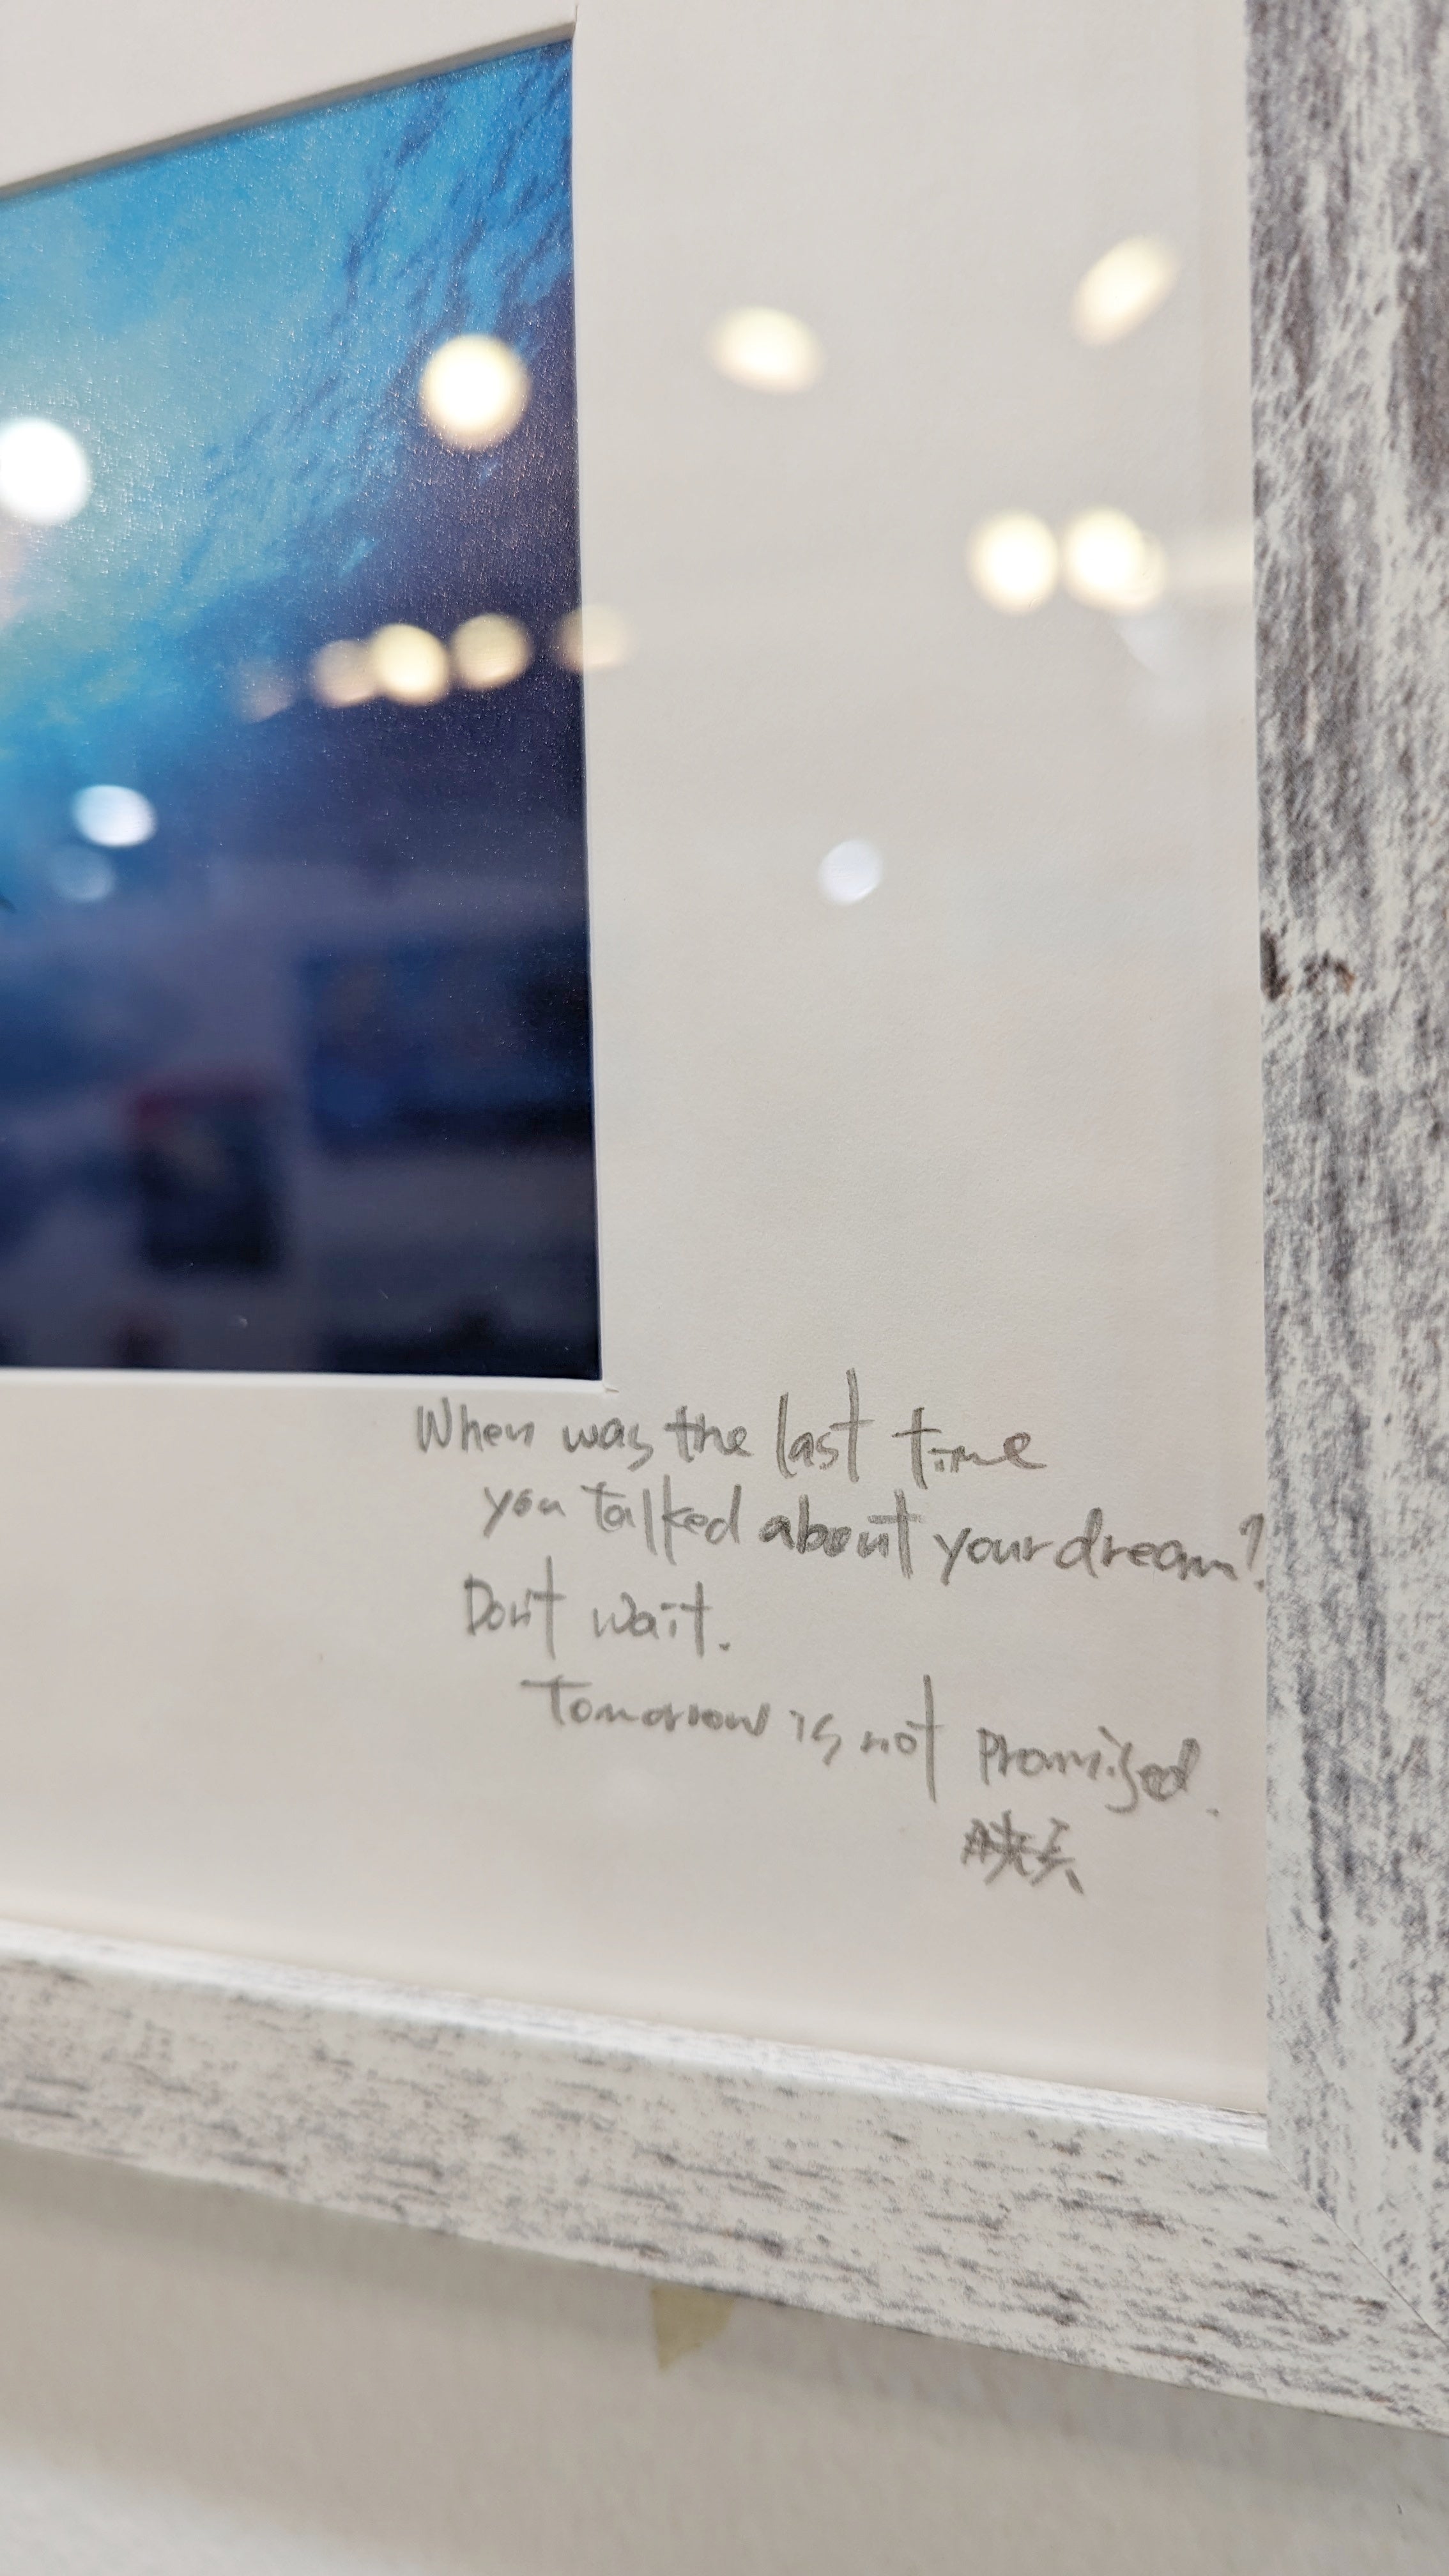 When was the last time
you talked about your dream?
Don't wait.
Tomorrow is not promised.